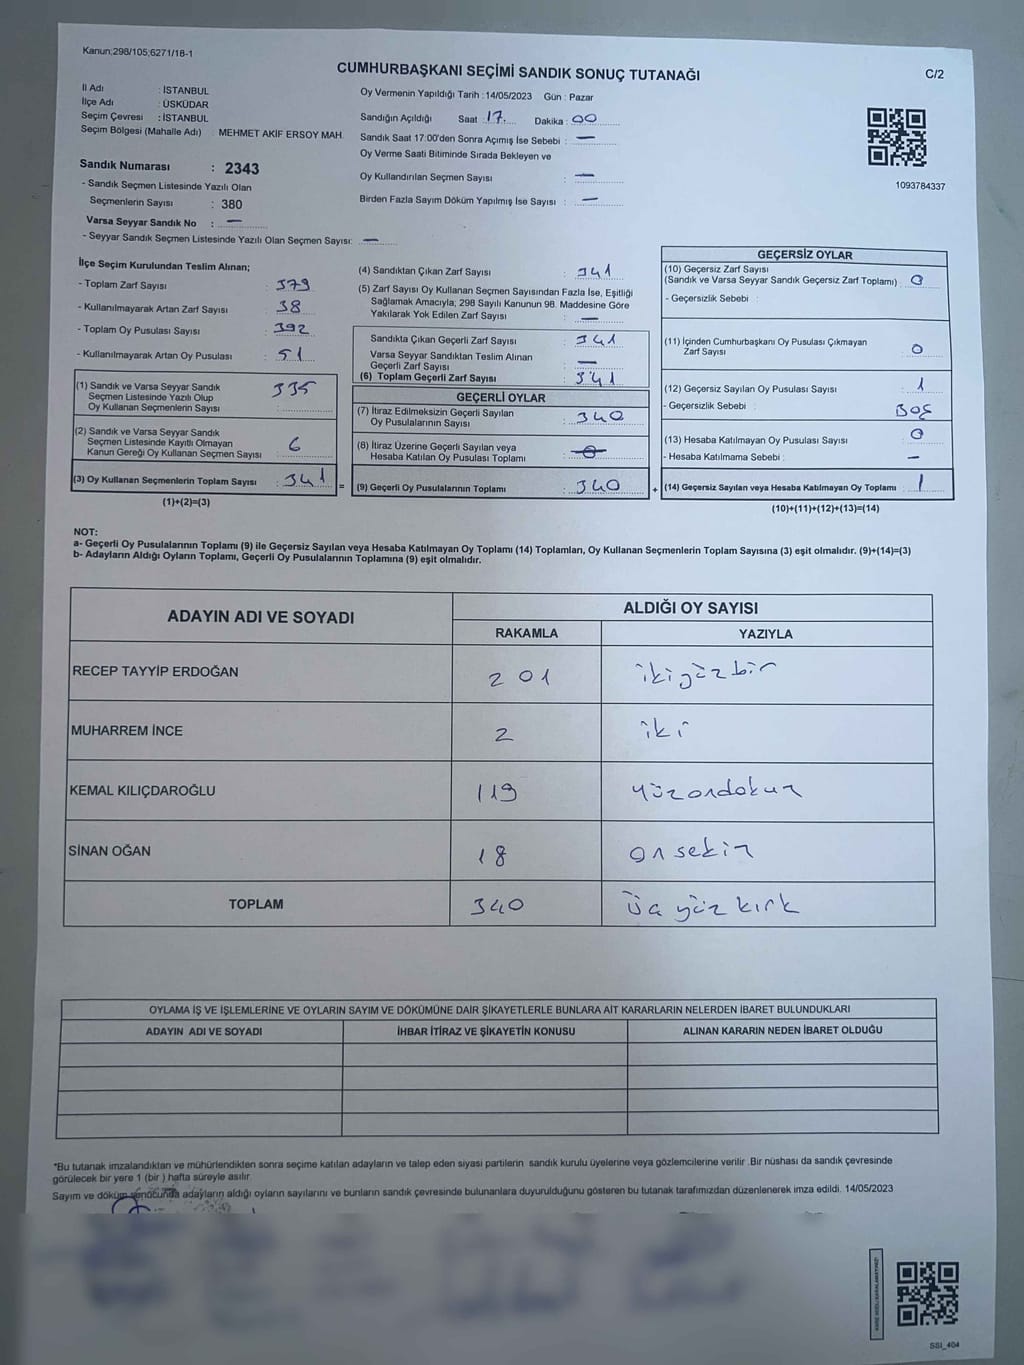 Kanun;298/105,6271/18-1
CUMHURBAŞKANI SEÇİMİ SANDIK SONUÇ TUTANAĞI
C/2
İl Adı : İSTANBUL
İlçe Adı : ÜSKÜDAR
Seçim Çevresi : İSTANBUL
Seçim Bölgesi (Mahalle Adı) : MEHMET AKİF ERSOY MAH.
Sandık Numarası : 2343
- Sandık Seçmen Listesinde Yazılı Olan
Seçmenlerin Sayısı : 380
Varsa Seyyar Sandık No : —
- Seyyar Sandık Seçmen Listesinde Yazılı Olan Seçmen Sayısı: —
Oy Vermenin Yapıldığı Tarih :14/05/2023 Gün : Pazar
Sandığın Açıldığı Saat : 17. Dakika : 00
Sandık Saat 17:00'den Sonra Açımış İse Sebebi : —
Oy Verme Saati Bitiminde Sırada Bekleyen ve
Oy Kullandırılan Seçmen Sayısı : —
Birden Fazla Sayım Döküm Yapılmış İse Sayısı : —
1093784337
İlçe Seçim Kurulundan Teslim Alınan;
- Toplam Zarf Sayısı : 379
- Kullanılmayarak Artan Zarf Sayısı : 38
- Toplam Oy Pusulası Sayısı : 392
- Kullanılmayarak Artan Oy Pusulası : 51
(1) Sandık ve Varsa Seyyar Sandık
Seçmen Listesinde Yazılı Olup
Oy Kullanan Seçmenlerin Sayısı : 335
(2) Sandık ve Varsa Seyyar Sandık
Seçmen Listesinde Kayıtlı Olmayan
Kanun Gereği Oy Kullanan Seçmen Sayısı : 6
(3) Oy Kullanan Seçmenlerin Toplam Sayısı : 341
(1)+(2)=(3)
(4) Sandıktan Çıkan Zarf Sayısı : 341
(5) Zarf Sayısı Oy Kullanan Seçmen Sayısından Fazla İse, Eşitliği
Sağlamak Amacıyla; 298 Sayılı Kanunun 98. Maddesine Göre
Yakılarak Yok Edilen Zarf Sayısı : —
Sandıkta Çıkan Geçerli Zarf Sayısı : 341
Varsa Seyyar Sandıktan Teslim Alınan
Geçerli Zarf Sayısı : —
(6) Toplam Geçerli Zarf Sayısı : 341
GEÇERLİ OYLAR
(7) İtiraz Edilmeksizin Geçerli Sayılan
Oy Pusulalarının Sayısı : 340
(8) İtiraz Üzerine Geçerli Sayılan veya
Hesaba Katılan Oy Pusulası Toplamı : 0
= (9) Geçerli Oy Pusulalarının Toplamı : 340 +
GEÇERSİZ OYLAR
(10) Geçersiz Zarf Sayısı
(Sandık ve Varsa Seyyar Sandık Geçersiz Zarf Toplamı) : 0
- Geçersizlik Sebebi :
(11) İçinden Cumhurbaşkanı Oy Pusulası Çıkmayan
Zarf Sayısı : 0
(12) Geçersiz Sayılan Oy Pusulası Sayısı : 1
- Geçersizlik Sebebi : Boş
(13) Hesaba Katılmayan Oy Pusulası Sayısı : 0
- Hesaba Katılmama Sebebi : —
(14) Geçersiz Sayılan veya Hesaba Katılmayan Oy Toplamı : 1
(10)+(11)+(12)+(13)=(14)
NOT:
a- Geçerli Oy Pusulalarının Toplamı (9) ile Geçersiz Sayılan veya Hesaba Katılmayan Oy Toplamı (14) Toplamları, Oy Kullanan Seçmenlerin Toplam Sayısına (3) eşit olmalıdır. (9)+(14)=(3)
b- Adayların Aldığı Oyların Toplamı, Geçerli Oy Pusulalarının Toplamına (9) eşit olmalıdır.
ADAYIN ADI VE SOYADI ALDIĞI OY SAYISI
RAKAMLA YAZIYLA
RECEP TAYYİP ERDOĞAN 201 ikiyüzbir
MUHARREM İNCE 2 iki
KEMAL KILIÇDAROĞLU 119 yüzondokuz
SİNAN OĞAN 18 onsekiz
TOPLAM 340 üç yüz kırk
OYLAMA İŞ VE İŞLEMLERİNE VE OYLARIN SAYIM VE DÖKÜMÜNE DAİR ŞİKAYETLERLE BUNLARA AİT KARARLARIN NELERDEN İBARET BULUNDUKLARI
ADAYIN ADI VE SOYADI İHBAR İTİRAZ VE ŞİKAYETİN KONUSU ALINAN KARARIN NEDEN İBARET OLDUĞU
*Bu tutanak imzalandıktan ve mühürlendikten sonra seçime katılan adayların ve talep eden siyasi partilerin sandık kurulu üyelerine veya gözlemcilerine verilir .Bir nüshası da sandık çevresinde
görülecek bir yere 1 (bir ) hafta süreyle asılır.
Sayım ve döküm sonucunda adayların aldığı oyların sayılarını ve bunların sandık çevresinde bulunanlara duyurulduğunu gösteren bu tutanak tarafımızdan düzenlenerek imza edildi. 14/05/2023
SSI_404